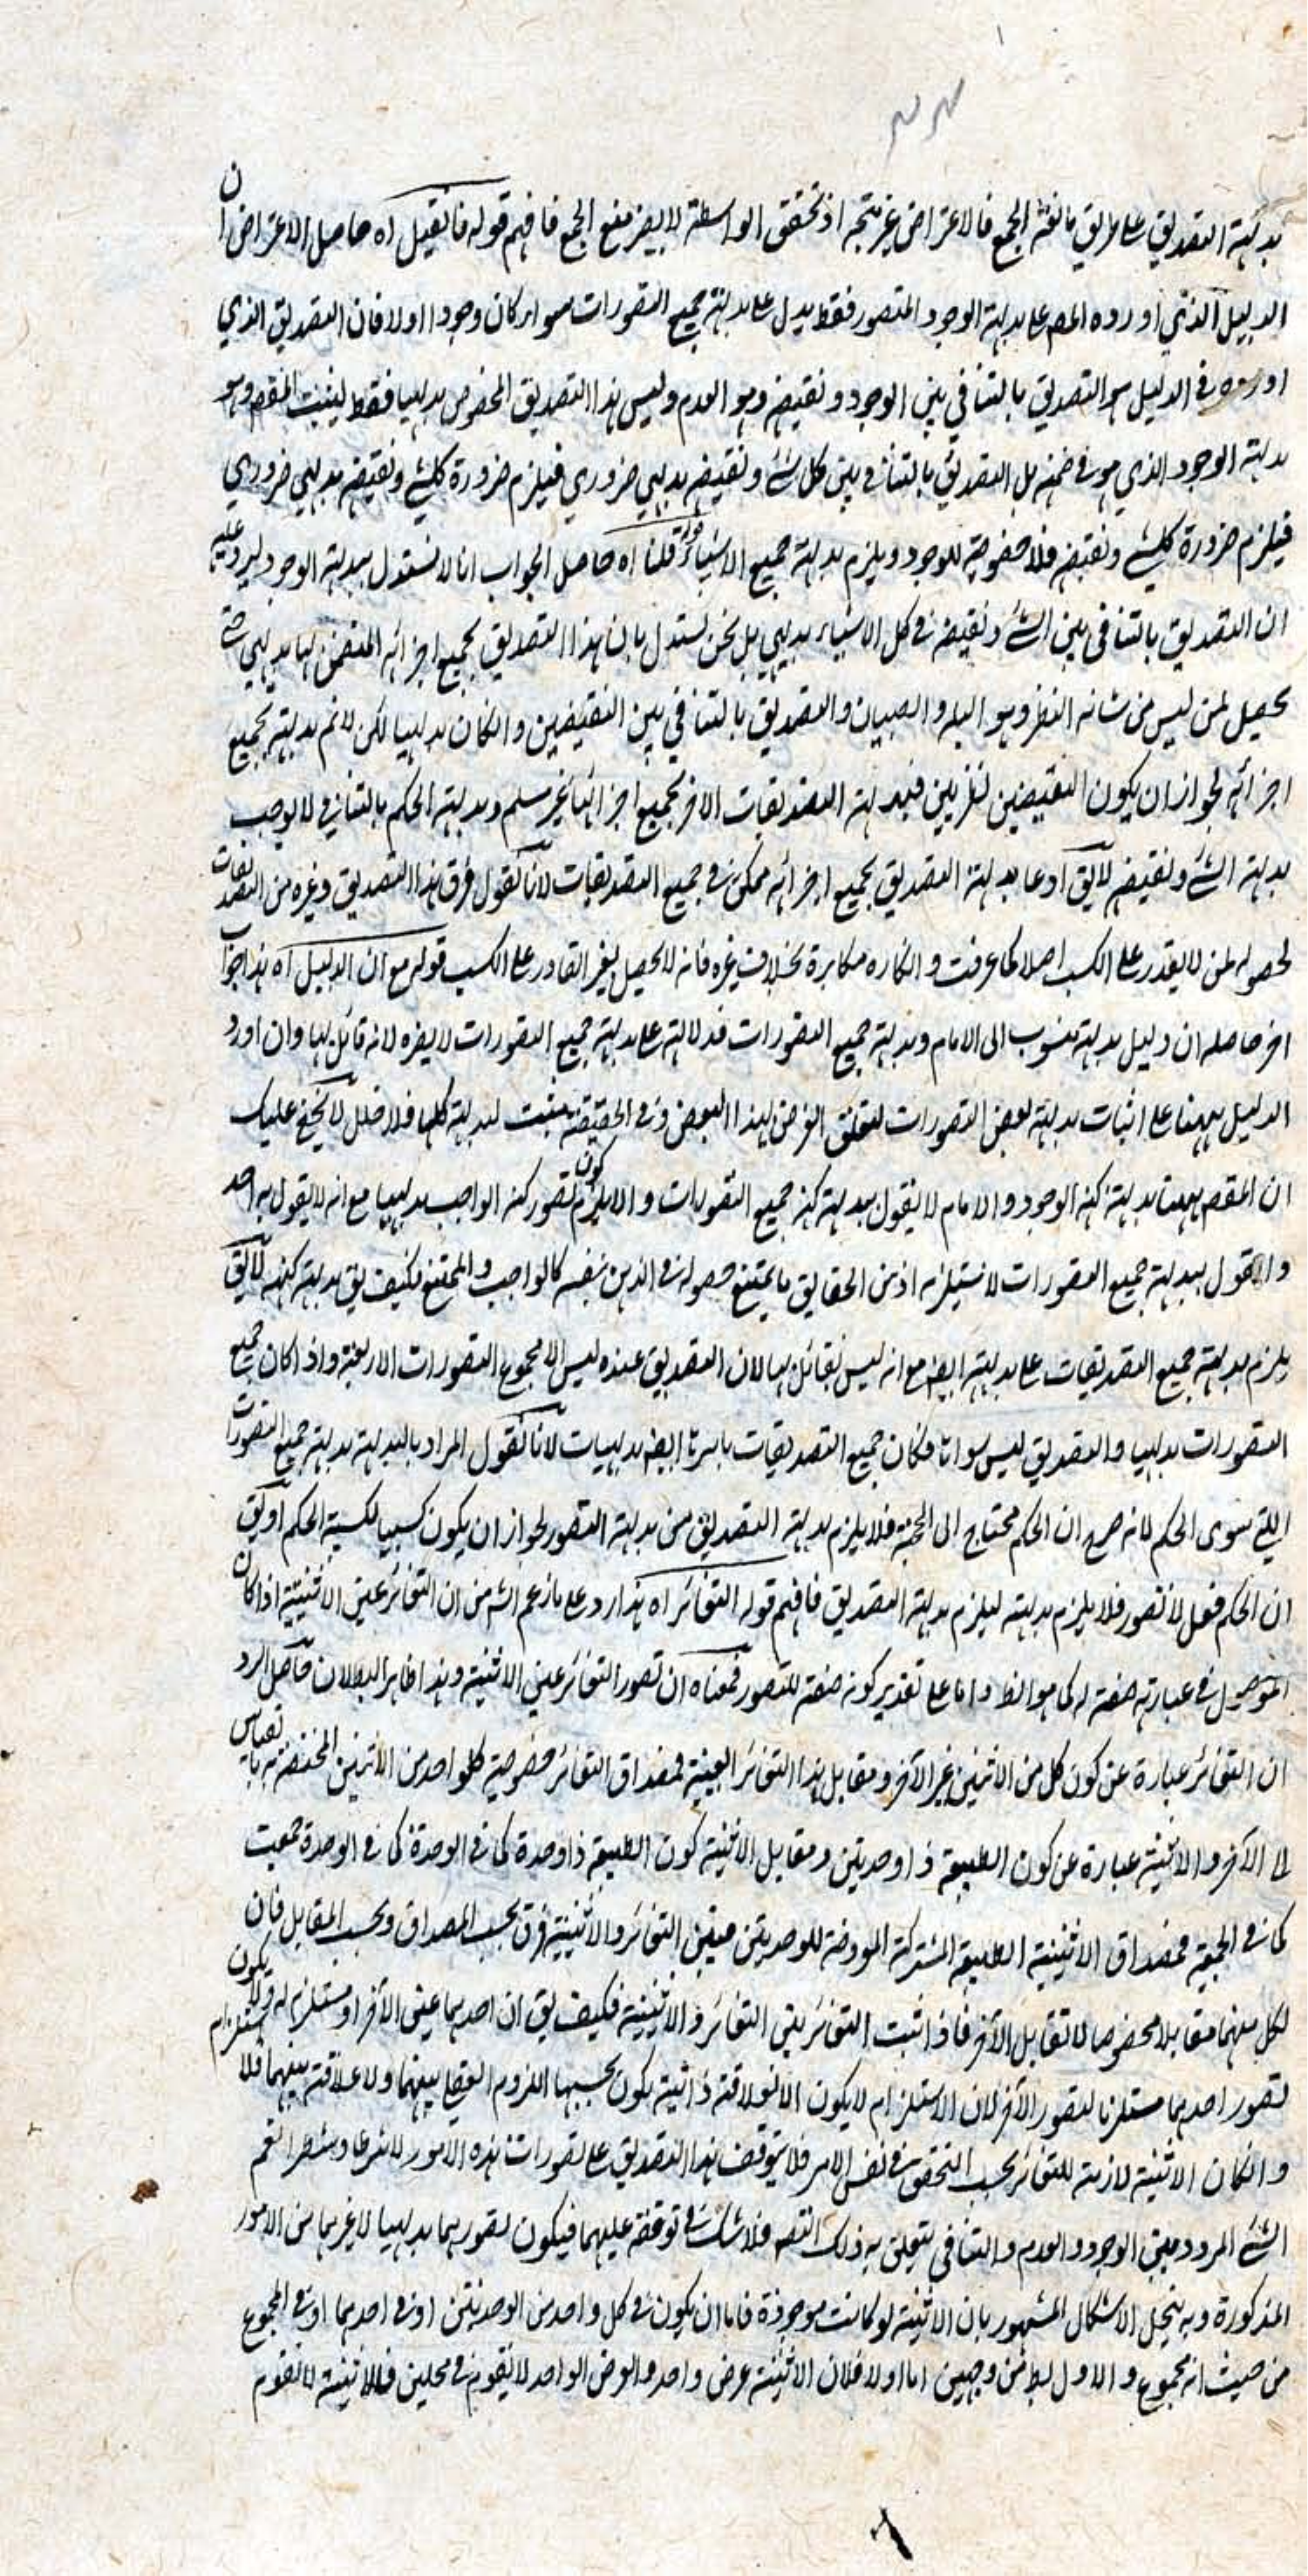 بديهة التصديق على طريق مانعة الجمع فالاعتراض غير متجه اذ تحقق الواسطة لا يضر منع الجمع فافهم قوله فان قيل اه حاصل الاعتراض ان
الدليل الذي اورده المص على بداهة الوجود المتصور فقط يدل على بداهة جميع التصورات سواء كان وجودا اولا فان التصديق الذي
اورده في الدليل هو التصديق بالتنافي بين الوجود ونقيضه وهو العدم وليس هذا التصديق المخصوص بديهيا فقط ليثبت المقصود وهو
بديهة الوجود الذي هو في ضمنه بل التصديق بالتنافي بين كل شئ ونقيضه بديهي ضروري فيلزم ضرورة كل شئ ونقيضه بديهي ضروري
فيلزم ضرورة كل شئ ونقيضه فلا خصوصية للوجود ويلزم بديهة جميع الاشياء قوله قلنا اه حاصل الجواب انا لا نستدل ببديهة الوجود ليرد عليه
ان التصديق بالتنافي بين الشئ ونقيضه في كل الاشياء بديهي بل نحن نستدل بان هذا التصديق بجميع اجزائه المتضمن لها بديهي حتى
يحصل لمن ليس من شانه النظر وهو البله والصبيان والتصديق بالتنافي بين النقيضين وان كان بديهيا لكن لا نم بديهة بجميع
اجزائه لجواز ان يكون النقيضين نظريين فبديهة التصديقات الاخر بجميع اجزائها غير مسلم وبديهة الحكم بالتنافي لا يوجب
بديهة الشئ ونقيضه لا يق ادعاء بديهة التصديق بجميع اجزائه ممكن في جميع التصديقات لانا نقول فرق هذا التصديق وغيره من التصديقات
لحصوله لمن لا يقدر على الكسب اصلا كما عرفت وانكاره مكابرة بخلاف غيره فانه لا يحصل لغير القادر على الكسب قوله مع ان الدليل اه هذا جواب
اخر حاصله ان دليل بديهة منسوب الى الامام وبديهة جميع التصورات فدلالته على بديهة جميع التصورات لا يضره لانه قائل بها وان اورد
الدليل ههنا على اثبات بديهة بعض التصورات لتعلق الغرض لهذا البعض وفي الحقيقة مثبت لبديهة كلها فلا خلل لا يخفى عليك
ان المقصود ههنا بديهة كنه الوجود والامام لا يقول ببديهة كنه جميع التصورات والا يلزم كون تصور كنه الواجب بديهيا مع انه لا يقول به احد
والقول ببديهة جميع التصورات لا يستلزمه اذ من الحقايق ما يمتنع حصوله في الذهن بنفسه كالواجب والممتنع فكيف يق بديهة كنهه لا يق
يلزم بديهة جميع التصديقات على بديهة ايضا مع انه ليس بقائل بها لان التصديق عنده ليس الا مجموع التصورات الاربعة واذا كان جميع
التصورات بديهيا والتصديق ليس سواها فكان جميع التصديقات باسرها ايضا بديهيات لانا نقول المراد بالبديهة بديهة جميع التصورات
التي سوى الحكم لانه صرح ان الحكم محتاج الى الحجة فلا يلزم بديهة التصديق من بديهة التصور لجواز ان يكون كسبيا لكسبية الحكم او يق
ان الحكم فعل لا تصور فلا يلزم بديهته ليلزم بديهة التصديق فافهم قوله التغائر اه هذا رد على ما زعم الشه من ان التغائر عين الاثنينية اذا كان
الموصول في عبارته صفة له كما هو الظ واما على تقدير كونه صفة للتصور فمعناه ان تصور التغائر عين الاثنينية وهذا ظاهر البطلان حاصل الرد
ان التغائر عبارة عن كون كل من الاثنين غير الاخر ومقابل هذا التغائر العينية فمصداق التغائر خصوصية كل واحد من الاثنين المختصة به بالقياس
الى الآخر والاثنينية عبارة عن كون الطبيعة ذا وحدتين ومقابل الاثنينية كون الطبيعة ذا وحدة كما في الوحدة كما في الوحدة جمعيت
كما في الجمعية فمصداق الاثنينية الطبيعة المشتركة المعروضة للوحدتين فبين التغائر والاثنينية فرق بحسب المصداق وبحسب المقابل فان
لكل منهما مقابلا مخصوصا لا تقابل الآخر فاذا ثبت التغائر بين التغائر والاثنينية فكيف يق ان احدهما عين الآخر او مستلزم له ولا يكون
تصور احدهما مستلزما لتصور الآخر لان الاستلزام لا يكون الا لعلاقة ذاتية يكون بحسبها اللزوم العقلي بينهما ولا علاقة بينهما فلا استلزام
وان كان الاثنينية لازمة للتغائر بحسب التحقق في نفس الامر فلا يتوقف هذا التصديق على تصورات هذه الامور لا شرطا ولا شطرا نعم
الشئ المردد بين الوجود والعدم والتنافي يتعلق به ذلك التصديق فلا شك في توقفه عليهما فيكون تصورهما بديهيا لا غيرهما من الامور
المذكورة وبه ينحل الاشكال المشهور بان الاثنينية لو كانت موجودة فاما ان يكون في كل واحد من الوحدتين او في احدهما او في المجموع
من حيث انه مجموع والاول بط من وجهين اما اولا فلان الاثنينية عرض واحد والعرض الواحد لا يقوم في محلين فالاثنينية لا تقوم